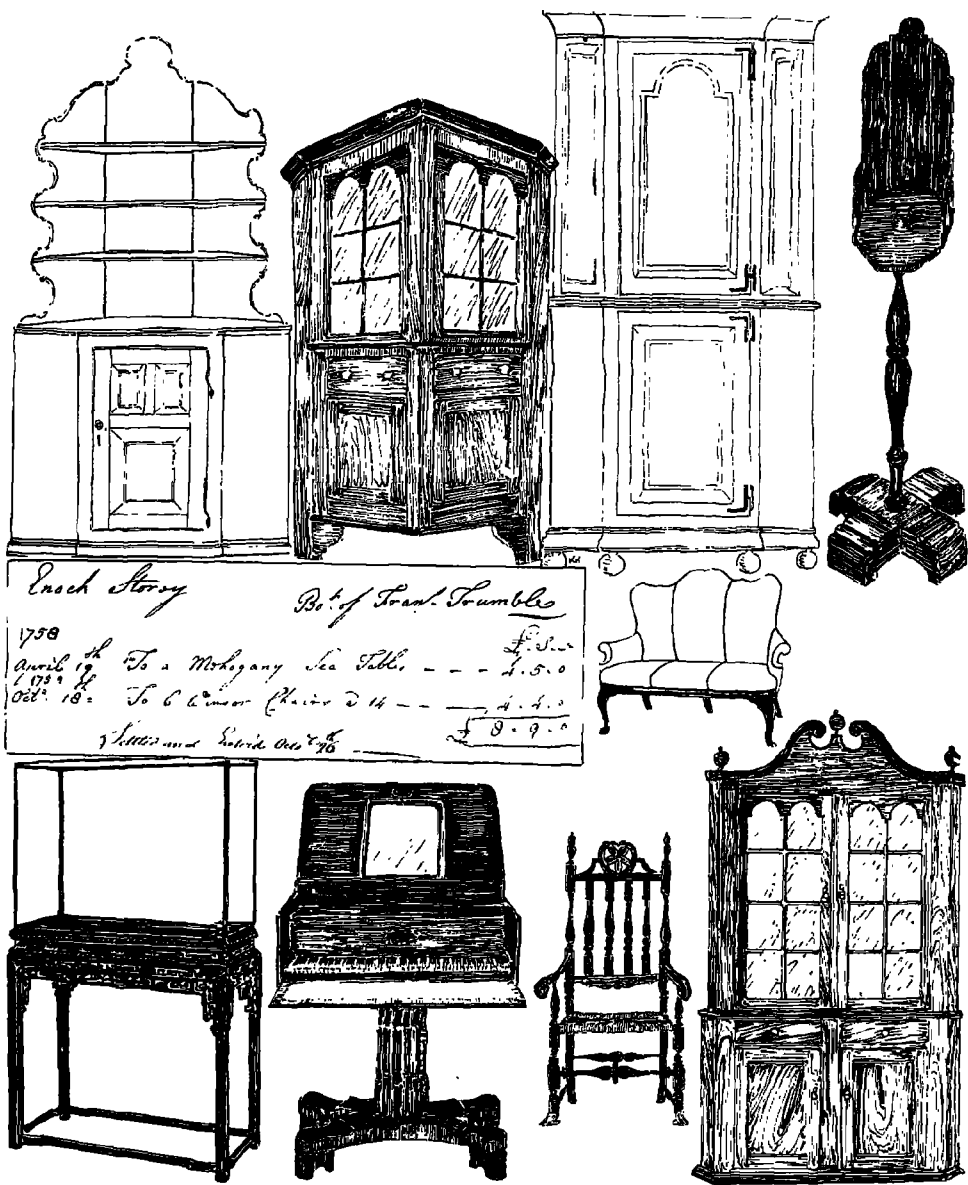 Enoch Storey Bot. of Fran.s Trumble
1758 £. s.
April 19th To a Mohogany Tea Table - - - 4.5.0
1759
Octr. 18th To 6 Winsor Chairs @ 14 - - - 4.4.0
£ 8.9.0